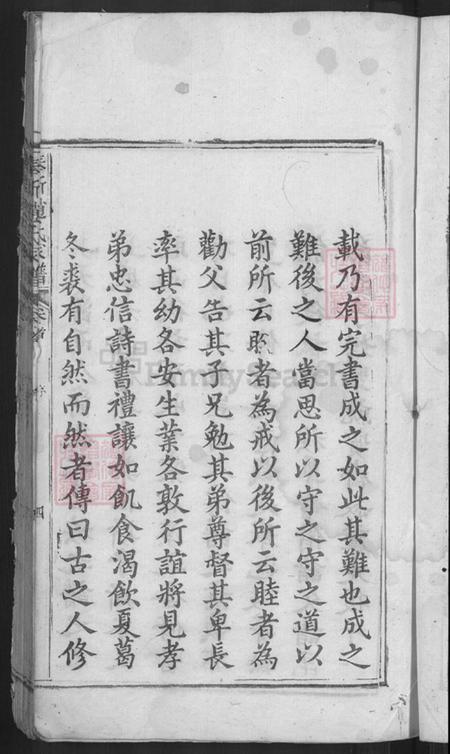 載乃有完書成之如此其難也成之
難後之人當思所以守之守之道以
前所云暌者為戒以後所云睦者為
勸父告其子兄勉其弟尊督其卑長
率其幼各安生業各敦行誼將見孝
弟忠信詩書禮讓如飢食渴飲夏葛
冬裘有自然而然者傳曰古之人修
氏家譜
卷首
序
四
FamilySearch